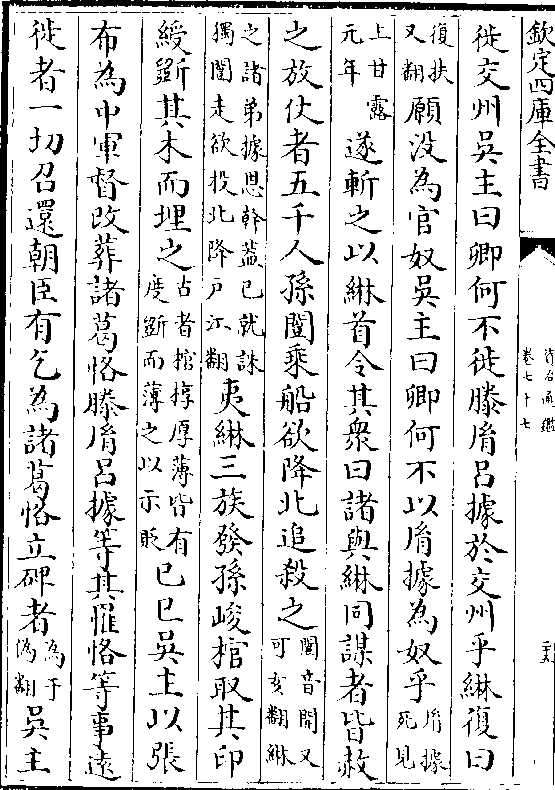 欽定四庫全書
資治通鑑
卷七十七
徙交州吳主曰卿何不徙滕胤呂據於交州乎綝復曰
復扶
又翻
願没為官奴吳主曰卿何不以胤據為奴乎
胤據
死見
上甘露
元年
遂斬之以綝首令其衆曰諸與綝同謀者皆赦
之放仗者五千人孫闓乘船欲降北追殺之
闓音開又
可亥翻綝
之諸弟據恩幹葢已就誅
獨闓走欲投北降戸江翻
夷綝三族發孫峻棺取其印
綬斲其木而埋之
古者棺椁厚薄皆有
度斲而薄之以示貶
己巳吳主以張
布為中軍督改葬諸葛恪滕胤呂據等其罹恪等事遠
徙者一切召還朝臣有乞為諸葛恪立碑者
為于
偽翻
吳主